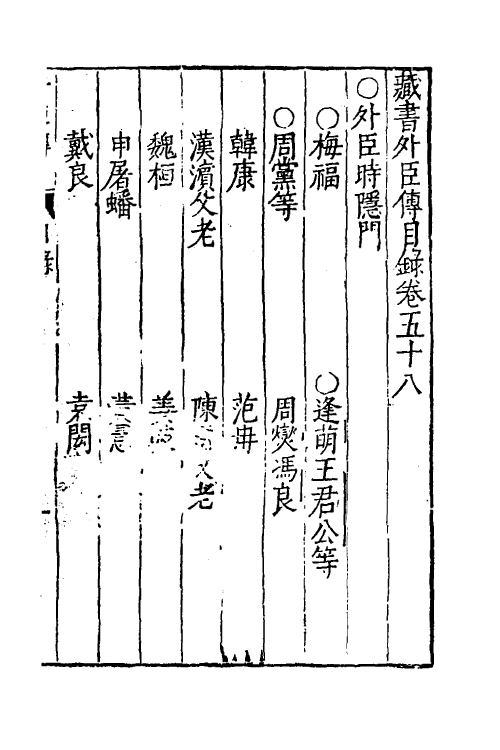 藏書外臣傳目錄卷五十八
○外臣時隱門
○梅福 ○逢萌王君公等
○周黨等 周燮馮良
韓康 范冉
漢濱父老 陳 父老
魏桓 姜
申屠蟠
戴良 袁閎
目錄